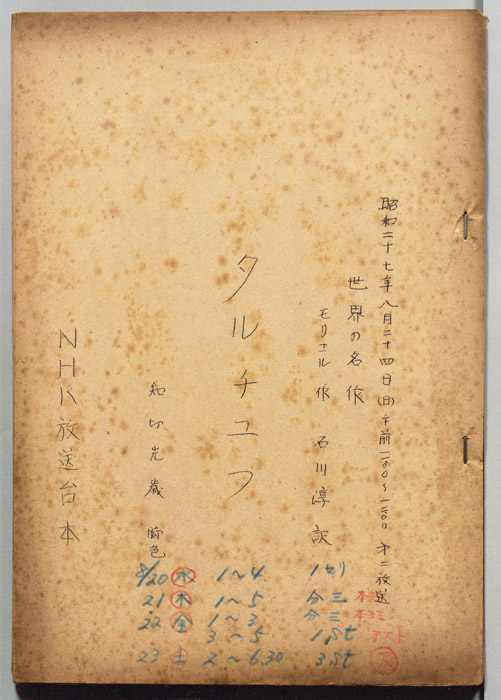 昭和二十七年八月二十四日(日)午前一一、〇〇〜一二、〇〇 第二放送
世界の名作
モリエール作 石川淳 訳
タルチユフ
知切光歳 脚色
NHK放送台本
8/20 水 1〜4 1セリ
21 木 1〜5 分三
22 金 1〜3 分三
3〜5 1.St
23 土 2〜6.30 3.St